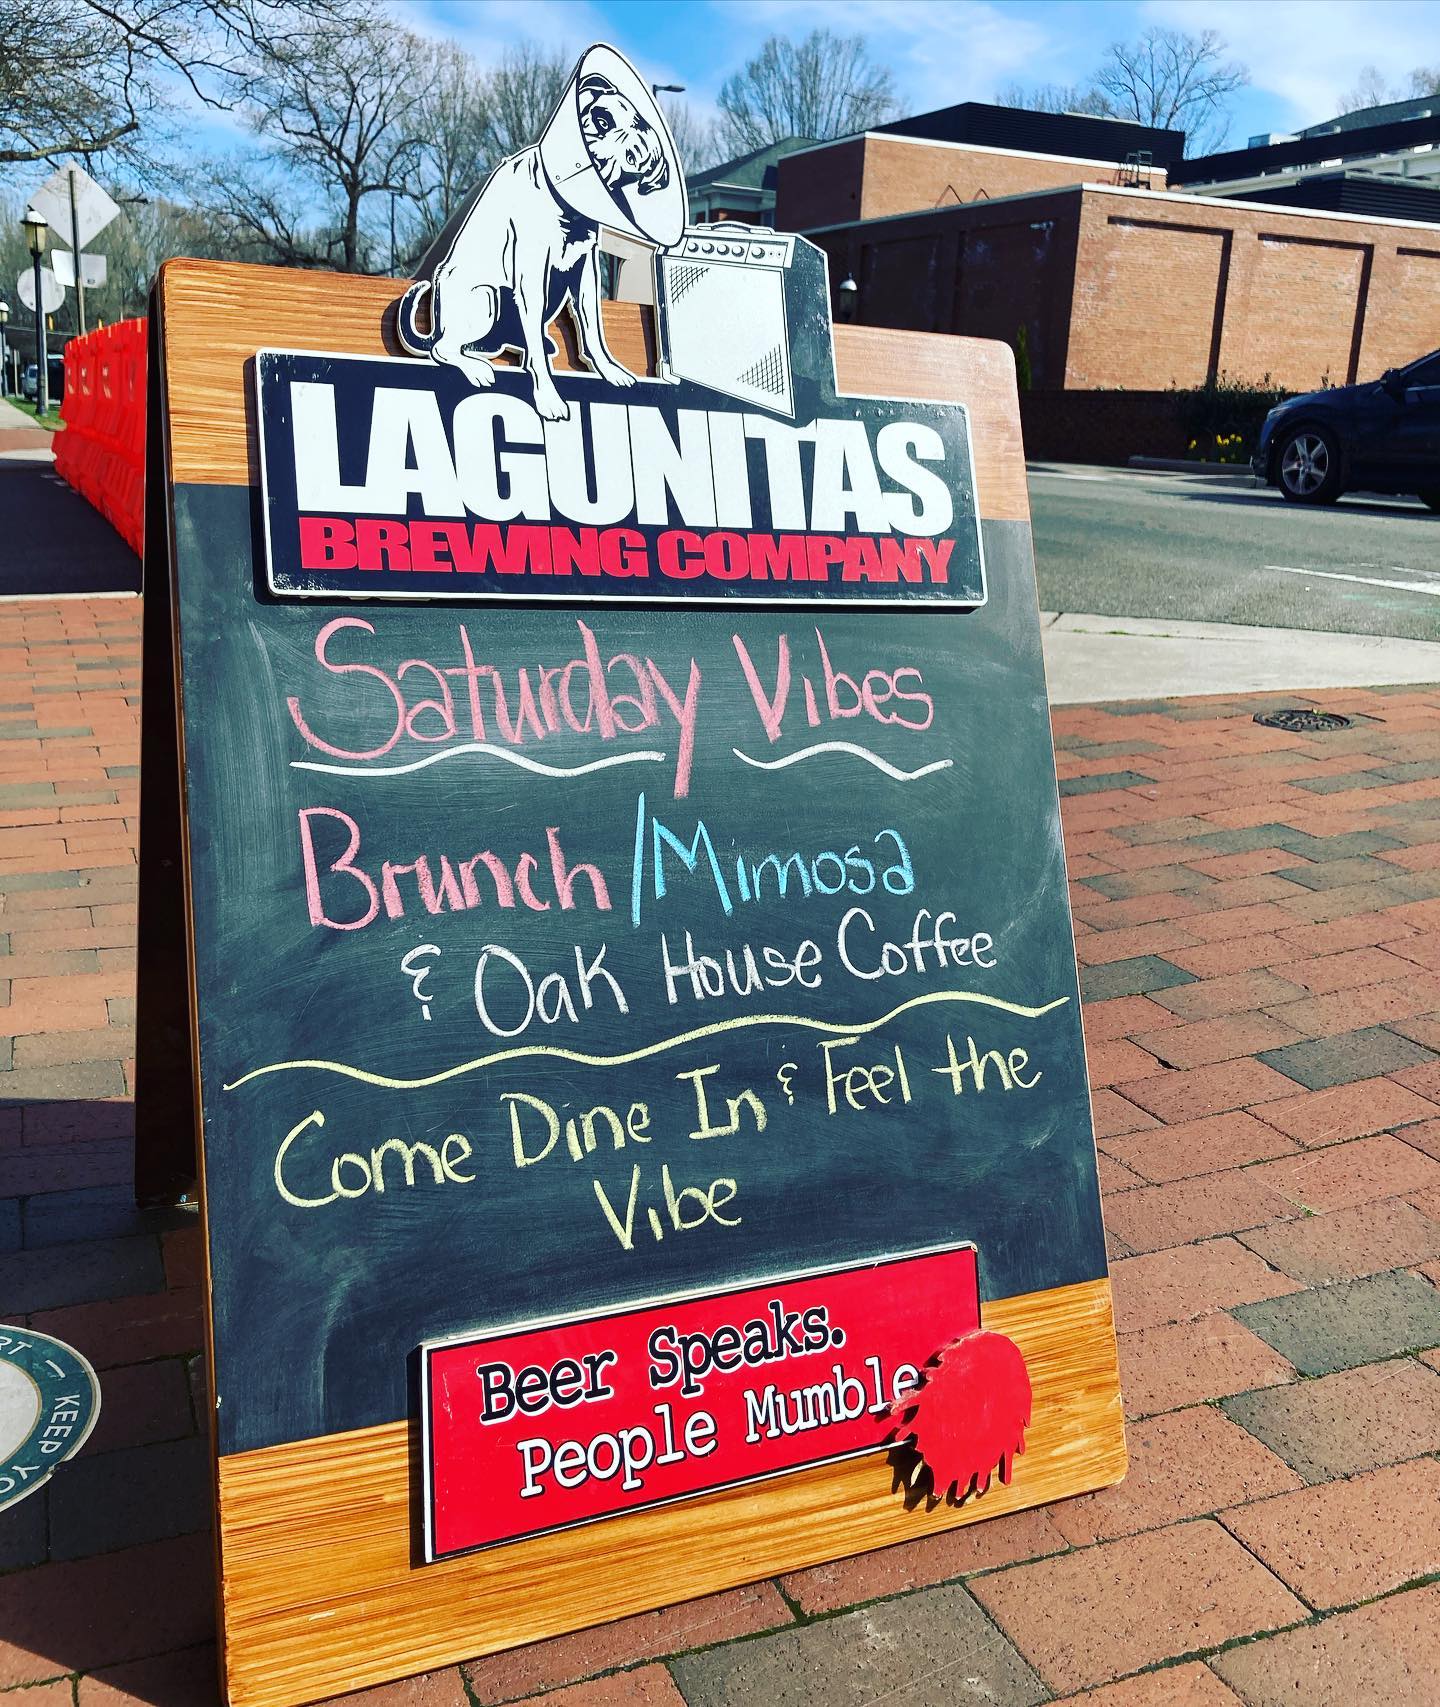 LAGUNITAS
BREWING COMPANY
Saturday Vibes
Brunch/Mimosa
& Oak House Coffee
Come Dine In & Feel the
Vibe
Beer Speaks.
People Mumble
KEEP YO